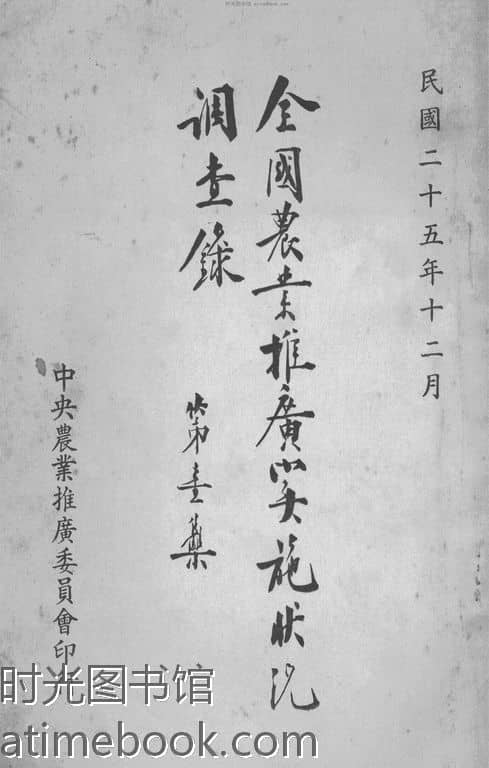 民國二十五年十二月
全國農業推廣实施狀況
调查錄
第壹集
中央農業推廣委員會印
时光图书馆
atimebook.com